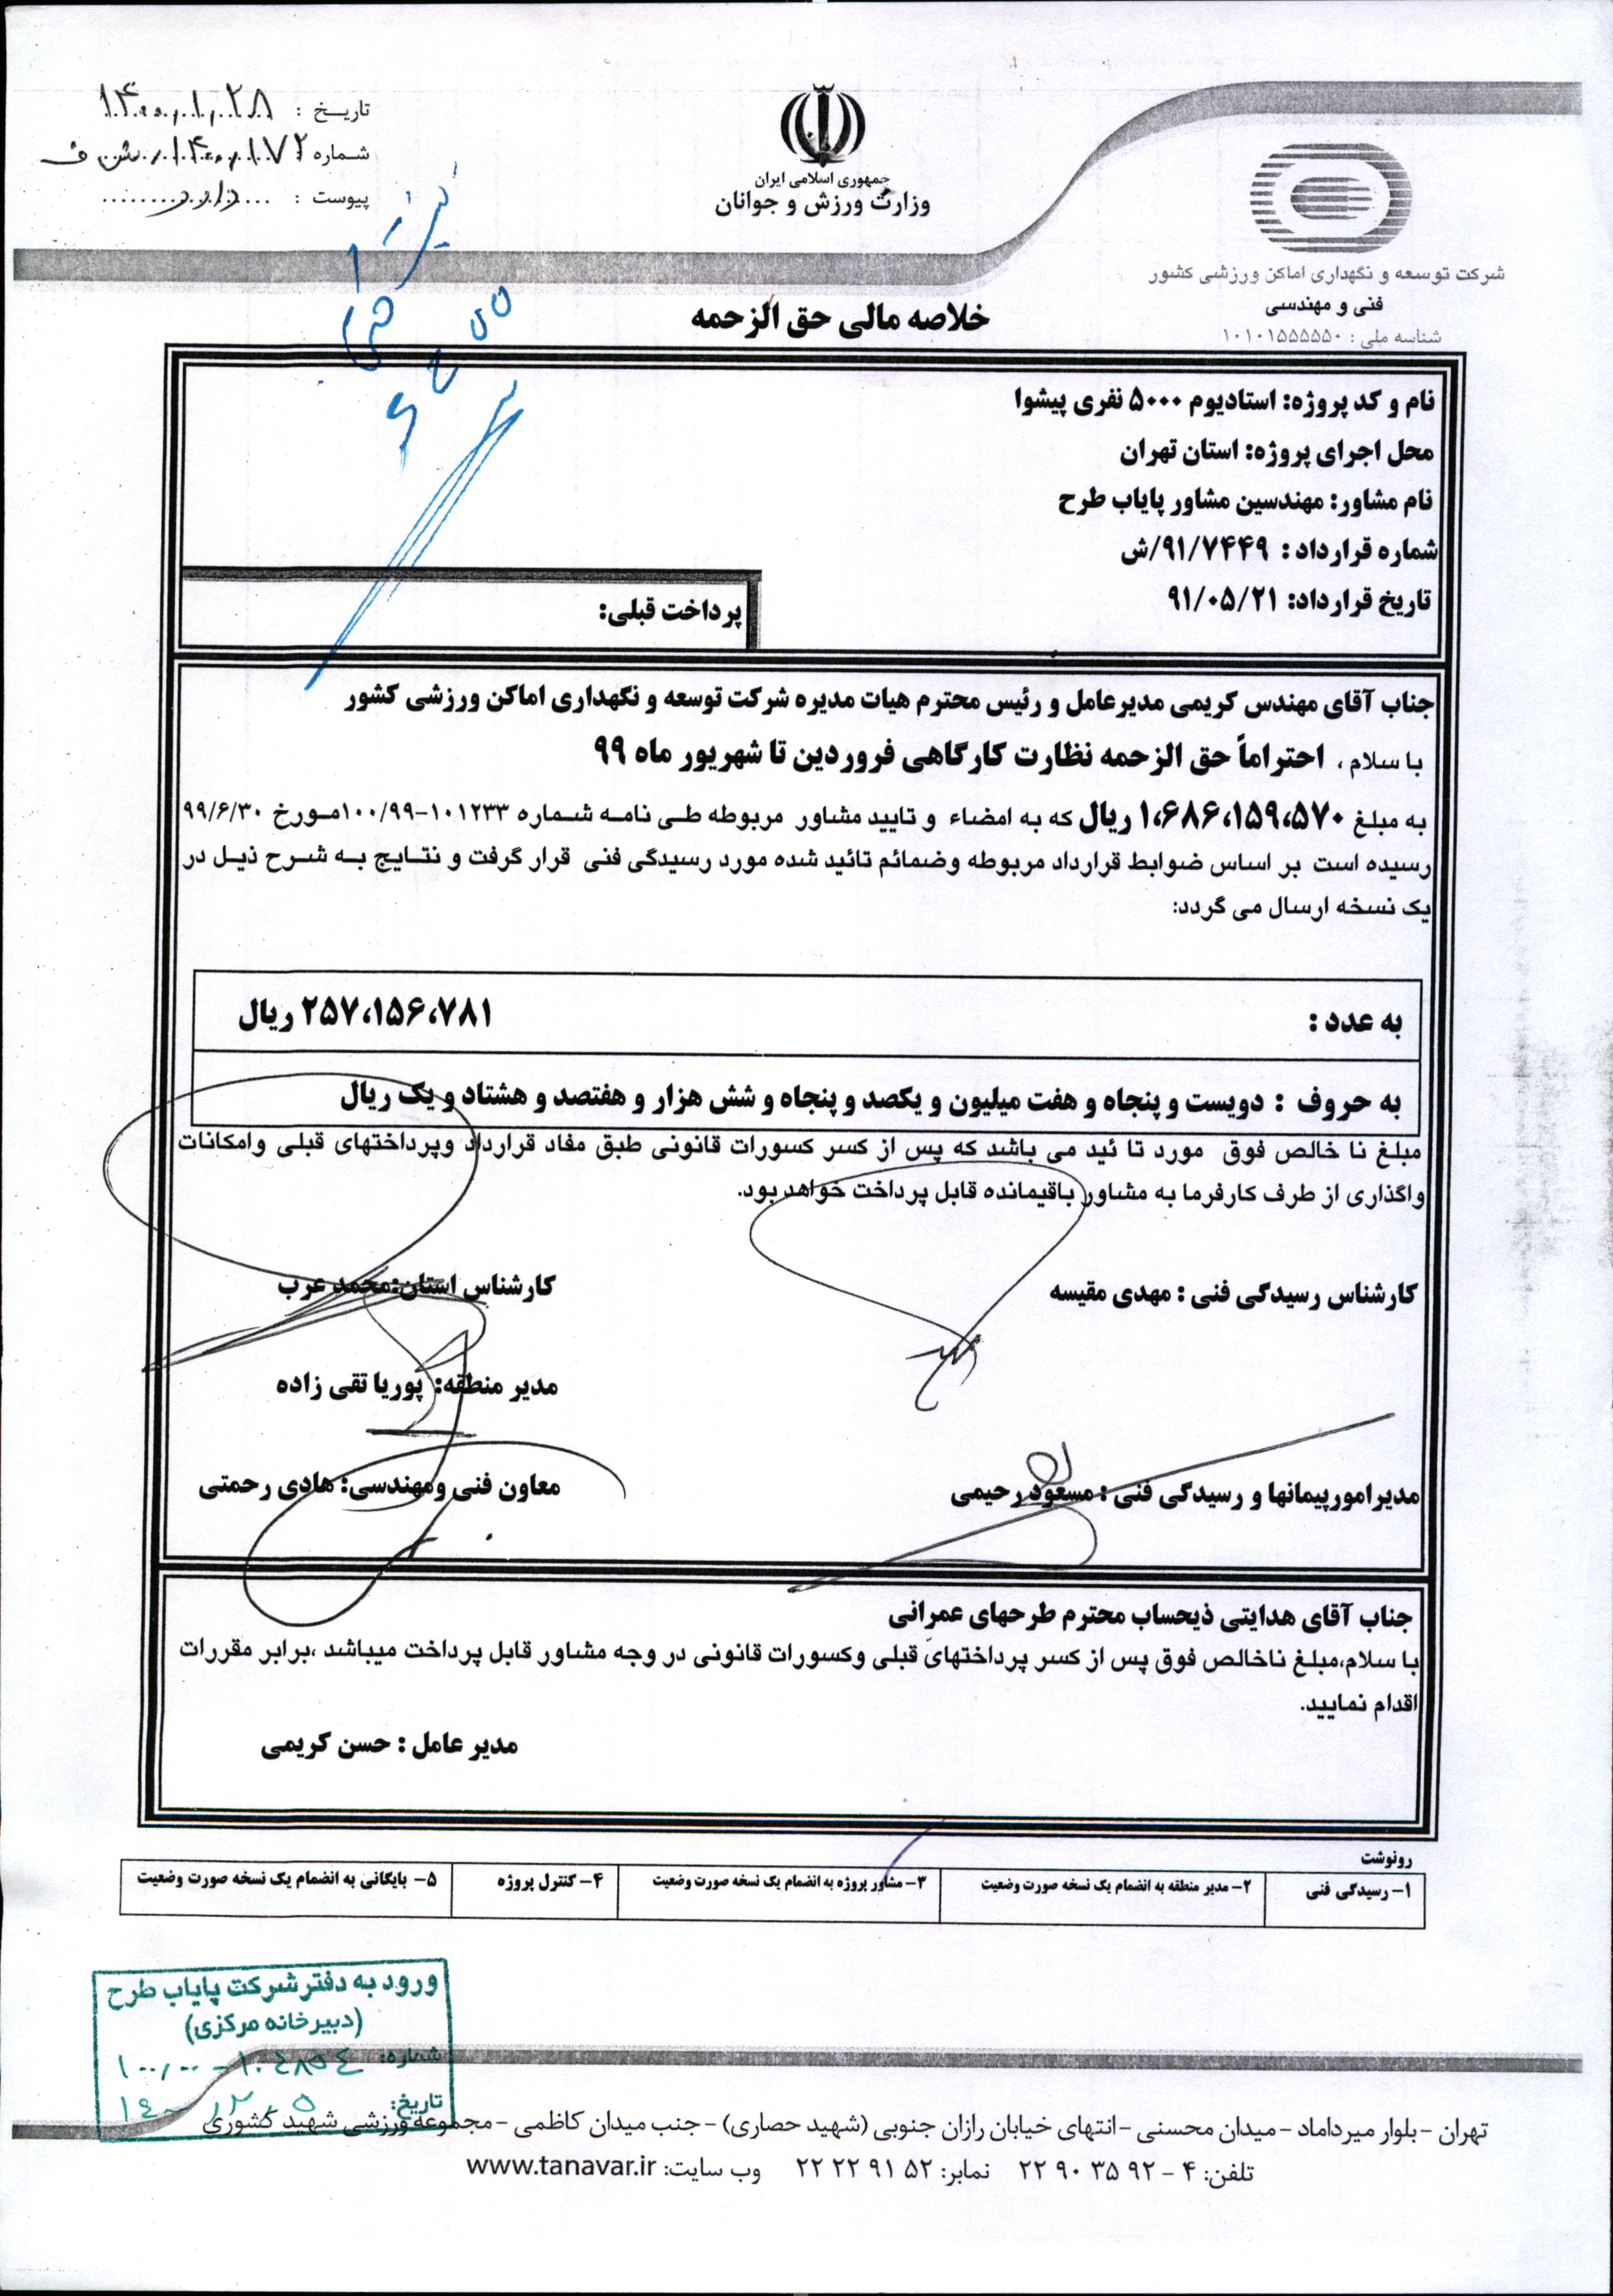 تاریخ : ۱۴۰۰,۱,۲۸
شماره ۱۴۰۰,۱۷۲
پیوست : دارد
جمهوری اسلامی ایران
وزارت ورزش و جوانان
شرکت توسعه و نگهداری اماکن ورزشی کشور
فنی و مهندسی
شناسه ملی : ۱۰۱۰۱۵۵۵۵۵۰
خلاصه مالی حق الزحمه
نام و کد پروژه: استادیوم ۵۰۰۰ نفری پیشوا
محل اجرای پروژه: استان تهران
نام مشاور: مهندسین مشاور پایاب طرح
شماره قرارداد : ۹۱/۷۴۴۹/ش
تاریخ قرارداد: ۹۱/۰۵/۲۱
پرداخت قبلی:
جناب آقای مهندس کریمی مدیرعامل و رئیس محترم هیات مدیره شرکت توسعه و نگهداری اماکن ورزشی کشور
با سلام ، احتراماً حق الزحمه نظارت کارگاهی فروردین تا شهریور ماه ۹۹
به مبلغ ۱،۶۸۶،۱۵۹،۵۷۰ ریال که به امضاء و تایید مشاور مربوطه طی نامه شماره ۱۰۱۲۳۳-۱۰۰/۹۹مورخ ۹۹/۶/۳۰
رسیده است بر اساس ضوابط قرارداد مربوطه وضمائم تائید شده مورد رسیدگی فنی قرار گرفت و نتایج به شرح ذیل در
یک نسخه ارسال می گردد:
به عدد : ۲۵۷،۱۵۶،۷۸۱ ریال
به حروف : دویست و پنجاه و هفت میلیون و یکصد و پنجاه و شش هزار و هفتصد و هشتاد و یک ریال
مبلغ نا خالص فوق مورد تا ئید می باشد که پس از کسر کسورات قانونی طبق مفاد قرارداد وپرداختهای قبلی وامکانات
واگذاری از طرف کارفرما به مشاور باقیمانده قابل پرداخت خواهد بود.
کارشناس رسیدگی فنی : مهدی مقیسه
کارشناس استان:محمد عرب
مدیر منطقه: پوریا تقی زاده
مدیرامورپیمانها و رسیدگی فنی : مسعود رحیمی
معاون فنی ومهندسی: هادی رحمتی
جناب آقای هدایتی ذیحساب محترم طرحهای عمرانی
با سلام،مبلغ ناخالص فوق پس از کسر پرداختهای قبلی وکسورات قانونی در وجه مشاور قابل پرداخت میباشد ،برابر مقررات
اقدام نمایید.
مدیر عامل : حسن کریمی
رونوشت
۱- رسیدگی فنی
۲- مدیر منطقه به انضمام یک نسخه صورت وضعیت
۳- مشاور پروژه به انضمام یک نسخه صورت وضعیت
۴- کنترل پروژه
۵- بایگانی به انضمام یک نسخه صورت وضعیت
ورود به دفتر شرکت پایاب طرح
(دبیرخانه مرکزی)
شماره: ۱۰۰,۰۰-۱۰۴۸۵۴
تاریخ:
تهران - بلوار میرداماد - میدان محسنی - انتهای خیابان رازان جنوبی (شهید حصاری) - جنب میدان کاظمی - مجموعه ورزشی شهید کشوری
تلفن: ۴ - ۹۲ ۳۵ ۹۰ ۲۲ نمابر: ۵۲ ۹۱ ۲۲ ۲۲ وب سایت: www.tanavar.ir